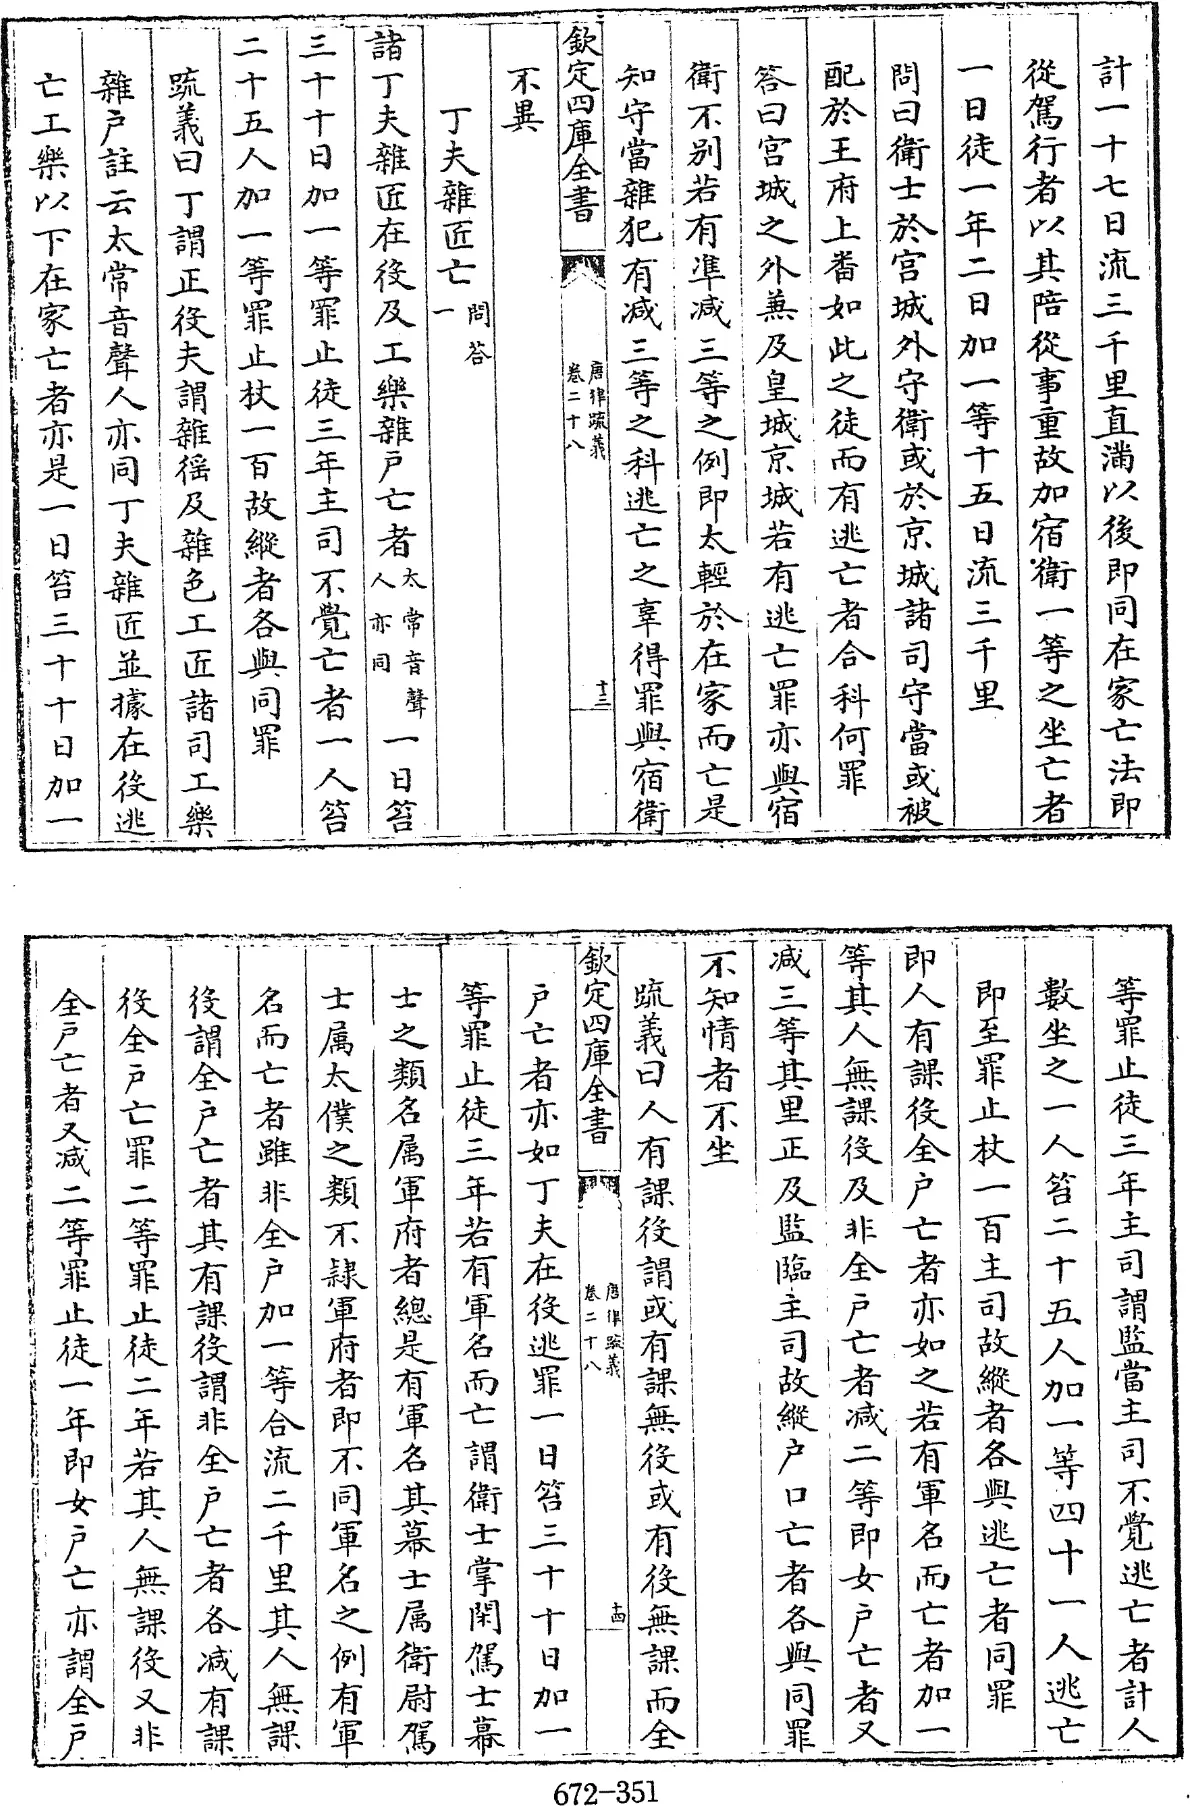 計一十七日流三千里直滿以後即同在家亡法即
從駕行者以其陪從事重故加宿衛一等之坐亡者
一日徒一年二日加一等十五日流三千里
問曰衛士於宮城外守衛或於京城諸司守當或被
配於王府上畨如此之徒而有逃亡者合科何罪
答曰宮城之外兼及皇城京城若有逃亡罪亦與宿
衛不别若有準減三等之例即太輕於在家而亡是
知守當雜犯有減三等之科逃亡之辜得罪與宿衛
欽定四庫全書
唐律疏義
卷二十八
十三
不異
丁夫雜匠亡問答一
諸丁夫雜匠在役及工樂雜戶亡者太常音聲人亦同一日笞
三十十日加一等罪止徒三年主司不覺亡者一人笞
二十五人加一等罪止杖一百故縱者各與同罪
疏義曰丁謂正役夫謂雜徭及雜色工匠諸司工樂
雜戶註云太常音聲人亦同丁夫雜匠並據在役逃
亡工樂以下在家亡者亦是一日笞三十十日加一
等罪止徒三年主司謂監當主司不覺逃亡者計人
數坐之一人笞二十五人加一等四十一人逃亡
即至罪止杖一百主司故縱者各與逃亡者同罪
即人有課役全戶亡者亦如之若有軍名而亡者加一
等其人無課役及非全戶亡者減二等即女戶亡者又
減三等其里正及監臨主司故縱戶口亡者各與同罪
不知情者不坐
欽定四庫全書
唐律疏義
卷二十八
十四
疏義曰人有課役謂或有課無役或有役無課而全
戶亡者亦如丁夫在役逃罪一日笞三十十日加一
等罪止徒三年若有軍名而亡謂衛士掌閑駕士幕
士之類名属軍府者總是有軍名其幕士属衛尉駕
士属太僕之類不隷軍府者即不同軍名之例有軍
名而亡者雖非全戶加一等合流二千里其人無課
役謂全戶亡者其有課役謂非全戶亡者各減有課
役全戶亡罪二等罪止徒二年若其人無課役又非
全戶亡者又減二等罪止徒一年即女戶亡亦謂全戶
672-351